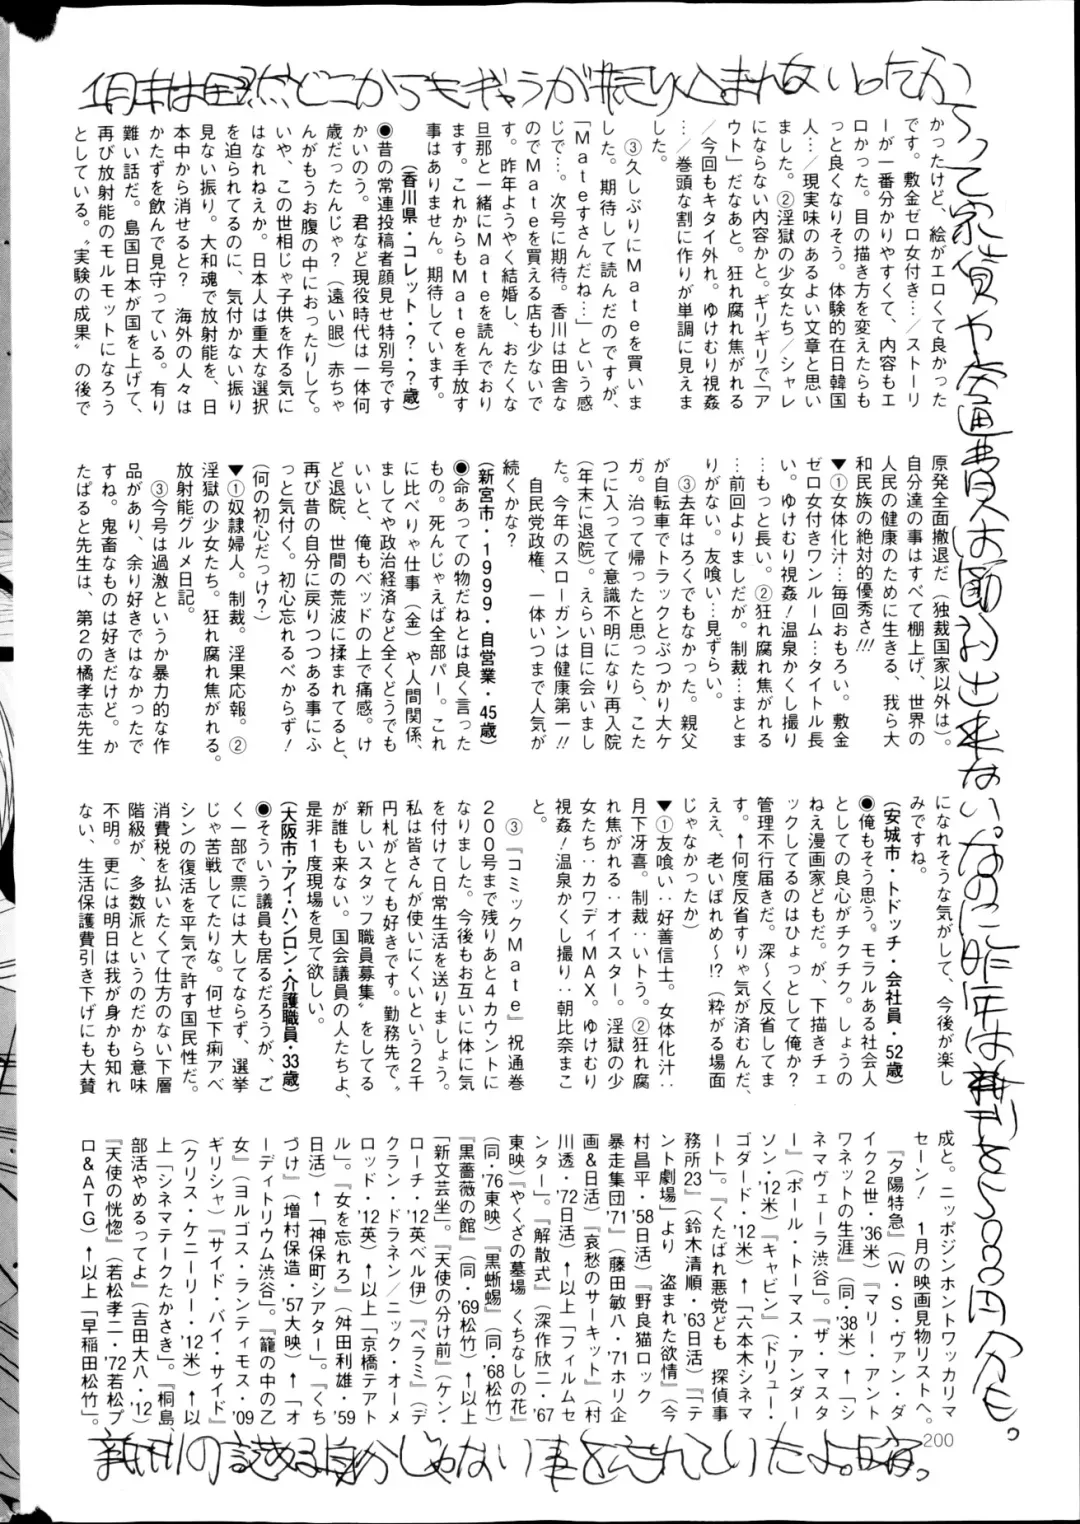 1月末は全然どこからもギャラが振り込まれないったか
らって家賃や交通費は節約出来ない。なのに昨年は新刊を5000円分も。
かったけど、絵がエロくて良かった
です。敷金ゼロ女付き…／ストーリ
ーが一番分かりやすくて、内容もエ
ロかった。目の描き方を変えたらも
っと良くなりそう。体験的在日韓国
人…／現実味のあるよい文章と思い
ました。②淫獄の少女たち／シャレ
にならない内容かと。ギリギリで「ア
ウト」だなあと。狂れ腐れ焦がれる
／今回もキタイ外れ。ゆけむり視姦
…／巻頭な割に作りが単調に見えま
した。
③久しぶりにＭａｔｅを買いま
した。期待して読んだのですが、
「Ｍａｔｅすさんだね…」という感
じで…。次号に期待。香川は田舎な
のでＭａｔｅを買える店も少ないで
す。昨年ようやく結婚し、おたくな
旦那と一緒にＭａｔｅを読んでおり
ます。これからもＭａｔｅを手放す
事はありません。期待しています。
（香川県・コレット・？・？歳）
●昔の常連投稿者顔見せ特別号です
かいのう。君など現役時代は一体何
歳だったんじゃ？（遠い眼）赤ちゃ
んがもうお腹の中におったりして。
いや、この世相じゃ子供を作る気に
はなれねえか。日本人は重大な選択
を迫られてるのに、気付かない振り
見ない振り。大和魂で放射能を、日
本中から消せると？　海外の人々は
かたずを飲んで見守っている。有り
難い話だ。島国日本が国を上げて、
再び放射能のモルモットになろう
としている。〝実験の成果〟の後で
原発全面撤退だ（独裁国家以外は）。
自分達の事はすべて棚上げ、世界の
人民の健康のために生きる、我ら大
和民族の絶対的優秀さ!!!
▼①女体化汁…毎回おもろい。敷金
ゼロ女付きワンルーム…タイトル長
い。ゆけむり視姦！温泉かくし撮り
…もっと長い。②狂れ腐れ焦がれる
…前回よりましだが。制裁…まとま
りがない。友喰い…見ずらい。
③去年はろくでもなかった。親父
が自転車でトラックとぶつかり大ケ
ガ。治って帰ったと思ったら、こた
つに入ってて意識不明になり再入院
（年末に退院）。えらい目に会いまし
た。今年のスローガンは健康第一!!
自民党政権、一体いつまで人気が
続くかな？
（新宮市・1999・自営業・45歳）
●命あっての物だねとは良く言った
もの。死んじゃえば全部パー。これ
に比べりゃ仕事（金）や人間関係、
ましてや政治経済など全くどうでも
いいと、俺もベッドの上で痛感。け
ど退院、世間の荒波に揉まれてると、
再び昔の自分に戻りつつある事にふ
っと気付く。初心忘れるべからず！
（何の初心だっけ？）
▼①奴隷婦人。制裁。淫果応報。②
淫獄の少女たち。狂れ腐れ焦がれる。
放射能グルメ日記。
③今号は過激というか暴力的な作
品があり、余り好きではなかったで
すね。鬼畜なものは好きだけど。か
たぱると先生は、第２の橘孝志先生
になれそうな気がして、今後が楽し
みですね。
（安城市・トドッチ・会社員・52歳）
●俺もそう思う。モラルある社会人
としての良心がチクチク。しょうの
ねえ漫画家どもだ。が、下描きチェ
ックしてるのはひょっとして俺か？
管理不行届きだ。深〜く反省してま
す。↑何度反省すりゃ気が済むんだ、
ええ、老いぼれめ〜!?（粋がる場面
じゃなかったか）
▼①友喰い‥好善信士。女体化汁‥
月下冴喜。制裁‥いトう。②狂れ腐
れ焦がれる‥オイスター。淫獄の少
女たち‥カワディＭＡＸ。ゆけむり
視姦！温泉かくし撮り‥朝比奈まこ
と。
③『コミックＭａｔｅ』祝通巻
２００号まで残りあと４カウントに
なりました。今後もお互いに体に気
を付けて日常生活を送りましょう。
私は皆さんが使いにくいという２千
円札がとても好きです。勤務先で〝
新しいスタッフ職員募集〟をしてる
が誰も来ない。国会議員の人たちよ、
是非１度現場を見て欲しい。
（大阪市・アイ・ハンロン・介護職員・33歳）
●そういう議員も居るだろうが、ご
く一部で票には大してならず、選挙
じゃ苦戦してたりな。何せ下痢アベ
シンの復活を平気で許す国民性だ。
消費税を払いたくて仕方のない下層
階級が、多数派というのだから意味
不明。更には明日は我が身かも知れ
ない、生活保護費引き下げにも大賛
成と。ニッポジンホントワッカリマ
セーン！　１月の映画見物リストへ。
『夕陽特急』（Ｗ・Ｓ・ヴァン・ダ
イク２世・'36米）『マリー・アント
ワネットの生涯』（同・'38米）↑「シ
ネマヴェーラ渋谷」。『ザ・マスタ
ー』（ポール・トーマス・アンダー
ソン・'12米）『キャビン』（ドリュー・
ゴダード・'12米）↑「六本木シネマ
ート」。『くたばれ悪党ども　探偵事
務所23』（鈴木清順・'63日活）『テ
ント劇場」より　盗まれた欲情』（今
村昌平・'58日活）『野良猫ロック
暴走集団'71』（藤田敏八・'71ホリ企
画＆日活）『哀愁のサーキット』（村
川透・'72日活）↑以上「フィルムセ
ンター」。『解散式』（深作欣二・'67
東映）『やくざの墓場　くちなしの花』
（同・'76東映）『黒蜥蜴』（同・'68松竹）
『黒薔薇の館』（同・'69松竹）↑以上
「新文芸坐」。『天使の分け前』（ケン・
ローチ・'12英ベル伊）『ベラミ』（デ
クラン・ドネラン／ニック・オーメ
ロッド・'12英）↑以上「京橋テアト
ル」。『女を忘れろ』（舛田利雄・'59
日活）↑「神保町シアター」。『くち
づけ』（増村保造・'57大映）↑「オ
ーディトリウム渋谷」。『籠の中の乙
女』（ヨルゴス・ランティモス・'09
ギリシャ）『サイド・バイ・サイド』
（クリス・ケニーリー・'12米）↑以
上「シネマテークたかさき」。『桐島、
部活やめるってよ』（吉田大八・'12）
『天使の恍惚』（若松孝二・'72若松プ
ロ＆ＡＴＧ）↑以上「早稲田松竹」。
新刊の読める身分じゃない事を忘れていたよ。
200